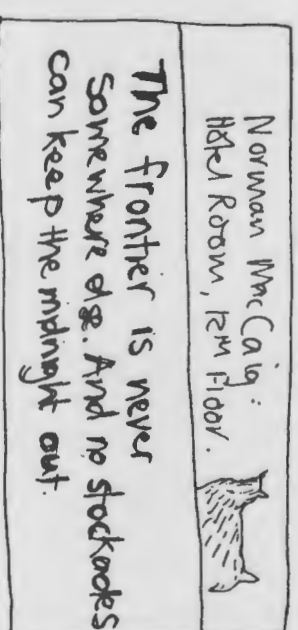 Norman MacCaig:
Hotel Room, 12th Floor.
The frontier is never
somewhere else. And no stockades
can keep the midnight out.